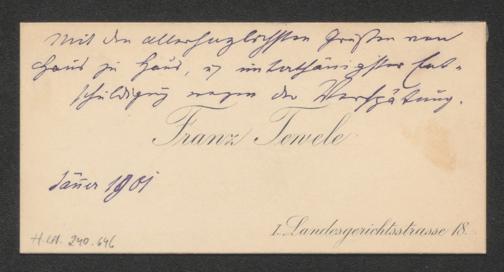 Mit den allerherzlichsten Grüßen von
Haus zu Haus, u unterthänigster Ent-
schuldigung wegen der Verspätung.
Franz Tewele
Jänner 1901
I. Landesgerichtsstrasse 18.
H.I.N. 240.646